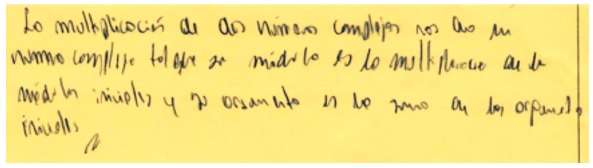 La multiplicación de dos números complejos nos da un
numero complejo tal que su módulo es la multiplicación de los
módulos iniciales y su argumento es la suma de los argumentos
iniciales